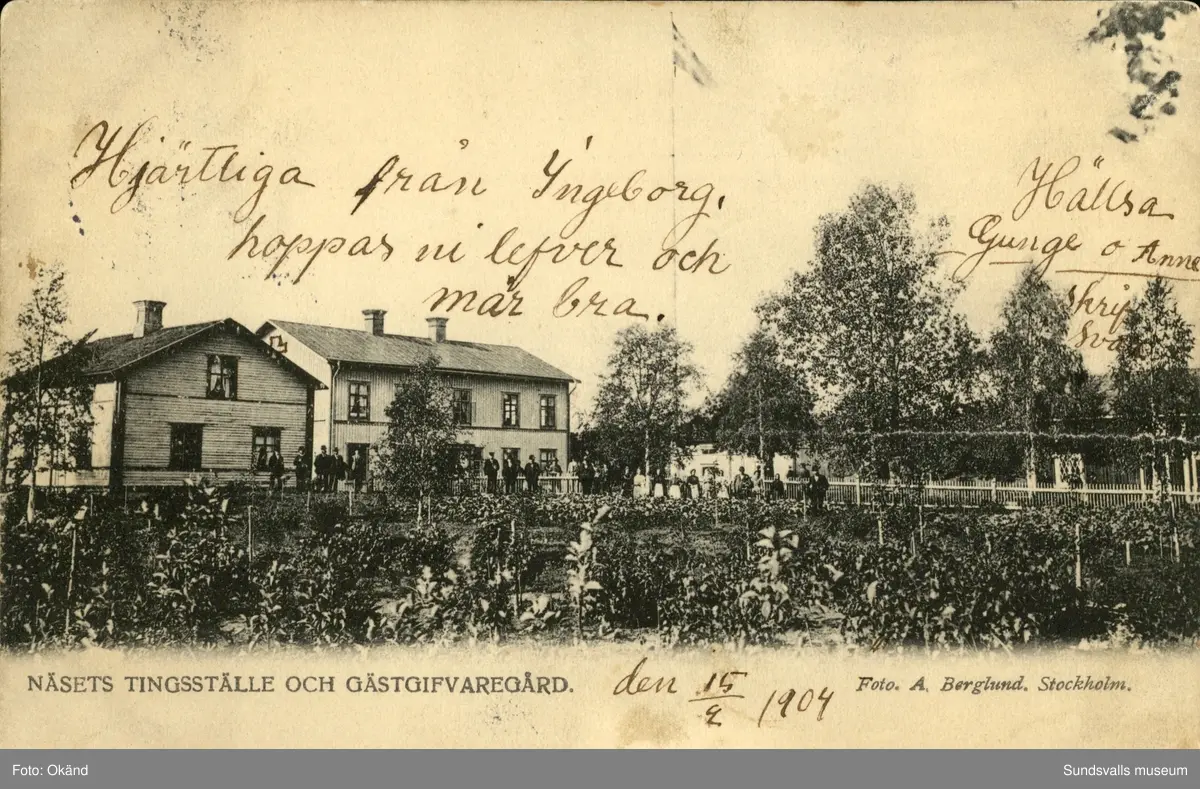 Hjärtliga från Yngeborg,
hoppas ni lefver och
mår bra.
Hällsa
Gunge o Anne
Skrif
NÄSETS TINGSSTÄLLE OCH GÄSTGIFVAREGÅRD.
den 15/2 1904
Foto. A. Berglund. Stockholm.
Foto: Okänd
Sundsvalls museum